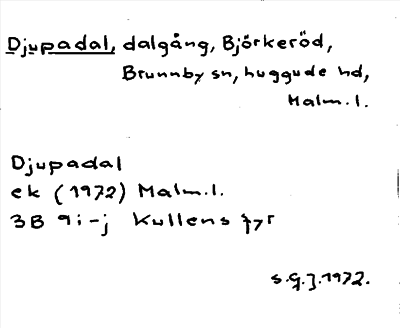 Djupadal, dalgång, Björkeröd,
Brunnby sn, huggude hd,
Malm.l.
Djupadal
ek (1972) Malm.l.
3B 9i-j Kullens fyr
S.G.J. 1972.